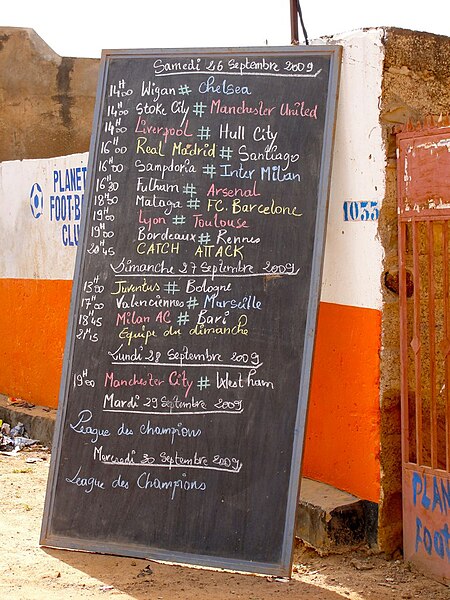 Samedi 26 Septembre 2009
14H00 Wigan # Chelsea
14H00 Stoke City # Manchester United
14H00 Liverpool # Hull City
16H00 Real Madrid # Santiago
16H00 Sampdoria # Inter Milan
16H30 Fulham # Arsenal
18H00 Malaga # FC. Barcelone
19H00 Lyon # Toulouse
19H00 Bordeaux # Rennes
20H45 CATCH ATTACK
Dimanche 27 Septembre 2009
13H00 Juventus # Bologne
17H00 Valenciennes # Marseille
18H45 Milan AC # Bari
21H15 Equipe du dimanche
Lundi 28 Septembre 2009
19H00 Manchester City # West ham
Mardi 29 Septembre 2009
League des champions
Mercredi 30 Septembre 2009
League des Champions
PLANET
FOOT-B
CLU
1035
PLAN
Foot